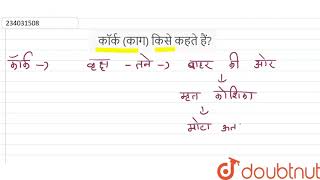 234031508
कॉर्क (काग) किसे कहते हैं?
कॉर्क → वृक्ष - तने → बाहर की ओर
↓
मृत कोशिका
↓
मोटा अत
doubtnut